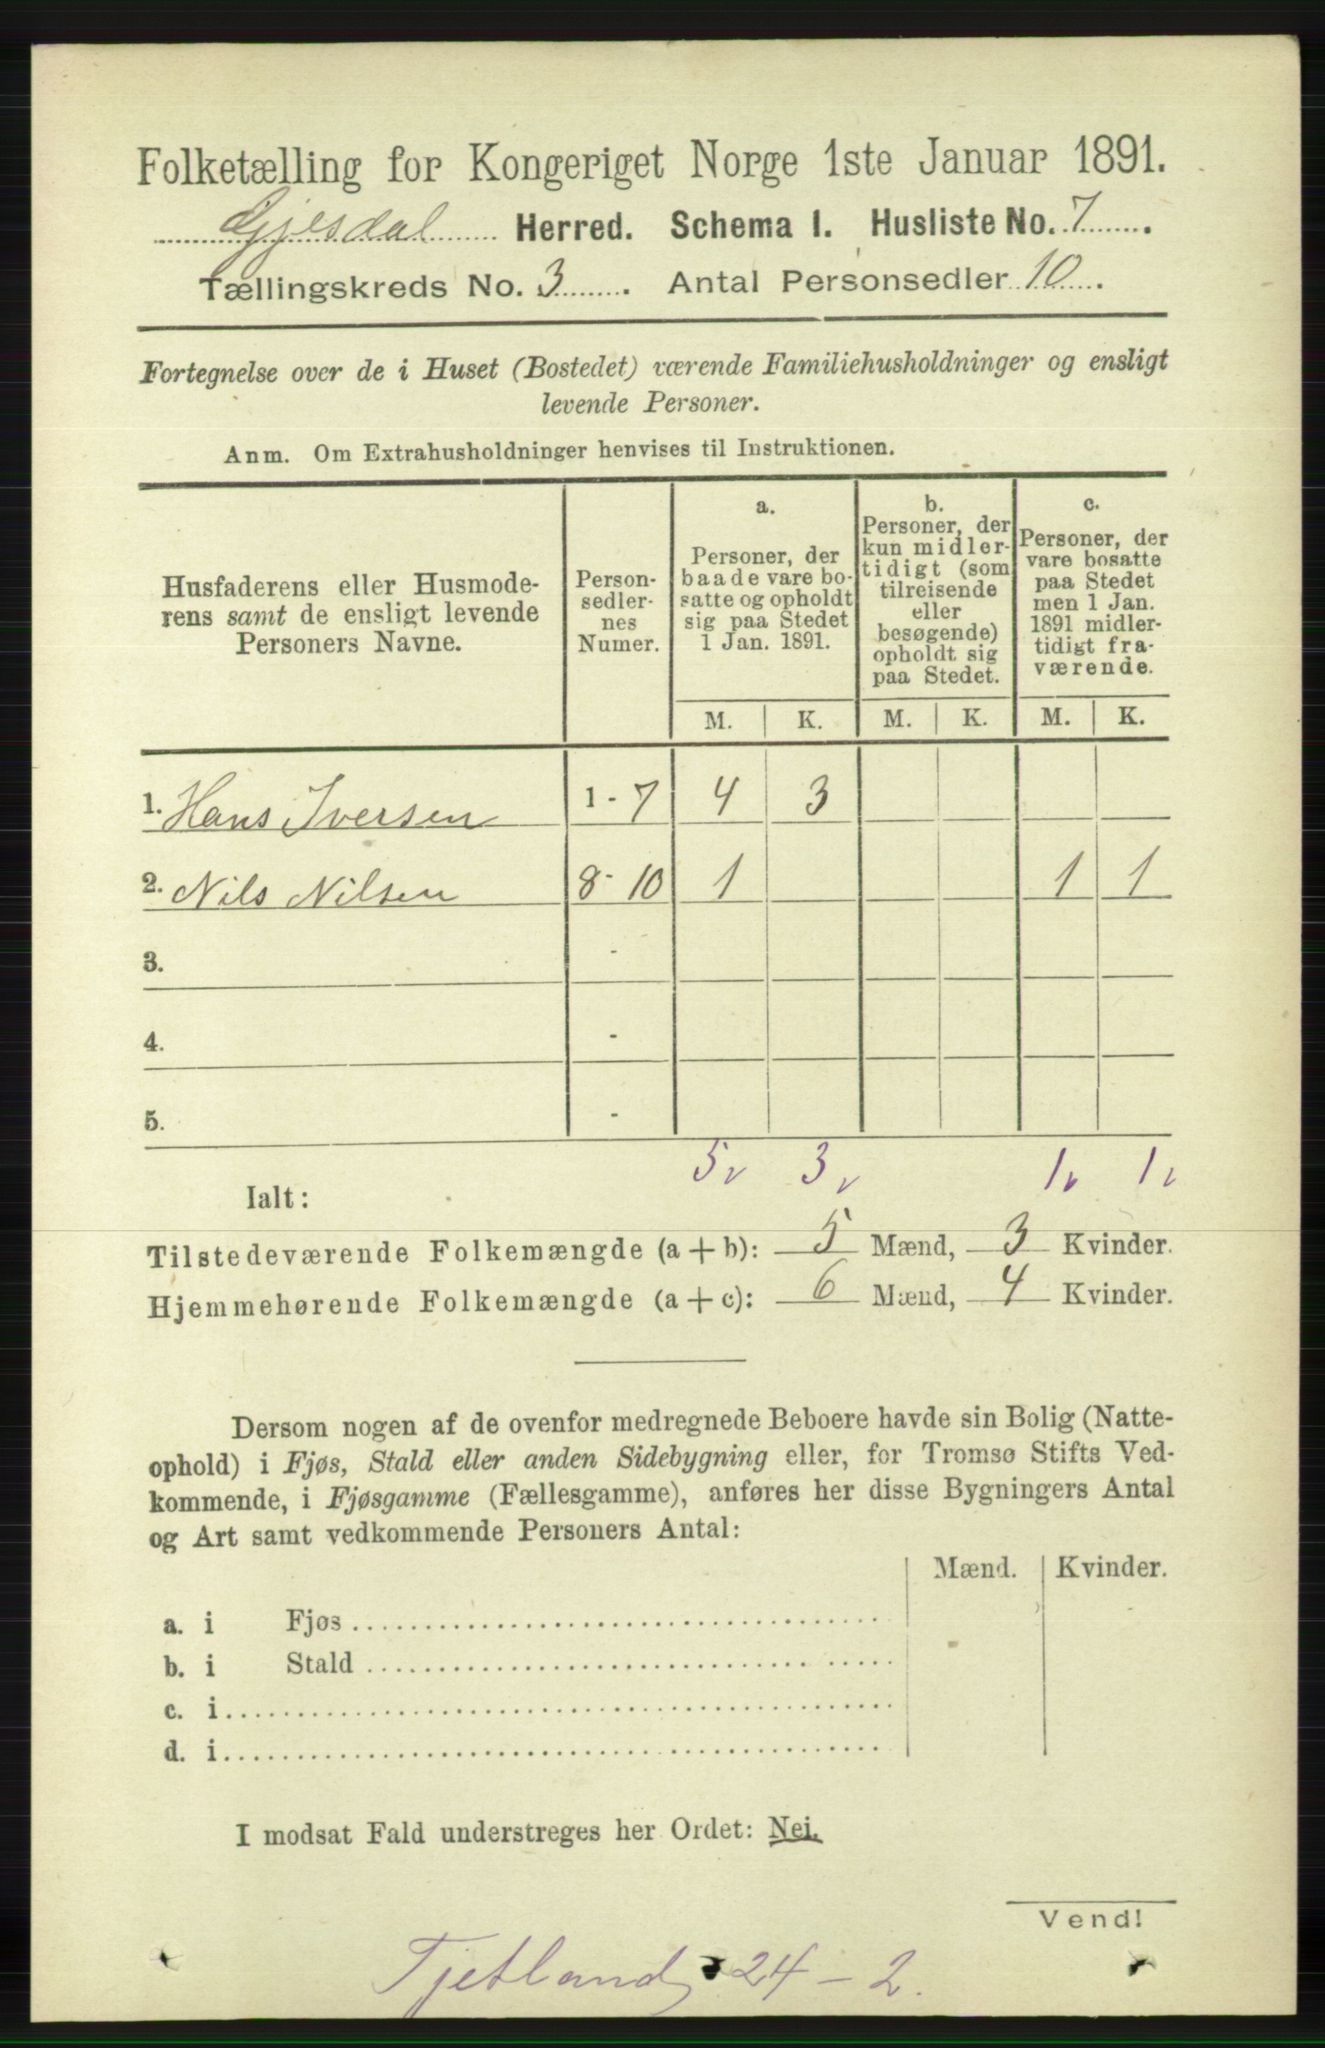 Folketælling for Kongeriget Norge 1ste Januar 1891.
Gjesdal Herred. Schema I. Husliste No. 7.
Tællingskreds No. 3. Antal Personsedler 10.
Fortegnelse over de i Huset (Bostedet) værende Familiehusholdninger og ensligt
levende Personer.
Anm. Om Extrahusholdninger henvises til Instruktionen.
Husfaderens eller Husmode-
rens samt de ensligt levende
Personers Navne.
Person-
sedler-
nes
Numer.
a.
Personer, der
baade vare bo-
satte og opholdt
sig paa Stedet
1 Jan. 1891.
b.
Personer, der
kun midler-
tidigt (som
tilreisende
eller
besøgende)
opholdt sig
paa Stedet.
c.
Personer, der
vare bosatte
paa Stedet
men 1 Jan.
1891 midler-
tidigt fra-
værende.
M. K. M. K. M. K.
1. Hans Iversen 1 - 7 4 3
2. Nils Nilsen 8 - 10 1 1 1
3. -
4. -
5. -
5 v 3 v 1 v 1 v
Ialt:
Tilstedeværende Folkemængde (a + b): 5 Mænd, 3 Kvinder.
Hjemmehørende Folkemængde (a + c): 6 Mænd, 4 Kvinder.
Dersom nogen af de ovenfor medregnede Beboere havde sin Bolig (Natte-
ophold) i Fjøs, Stald eller anden Sidebygning eller, for Tromsø Stifts Ved-
kommende, i Fjøsgamme (Fællesgamme), anføres her disse Bygningers Antal
og Art samt vedkommende Personers Antal:
Mænd. Kvinder.
a. i Fjøs
b. i Stald
c. i
d. i
I modsat Fald understreges her Ordet: Nei.
Vend!
Tjetland 24 - 2.